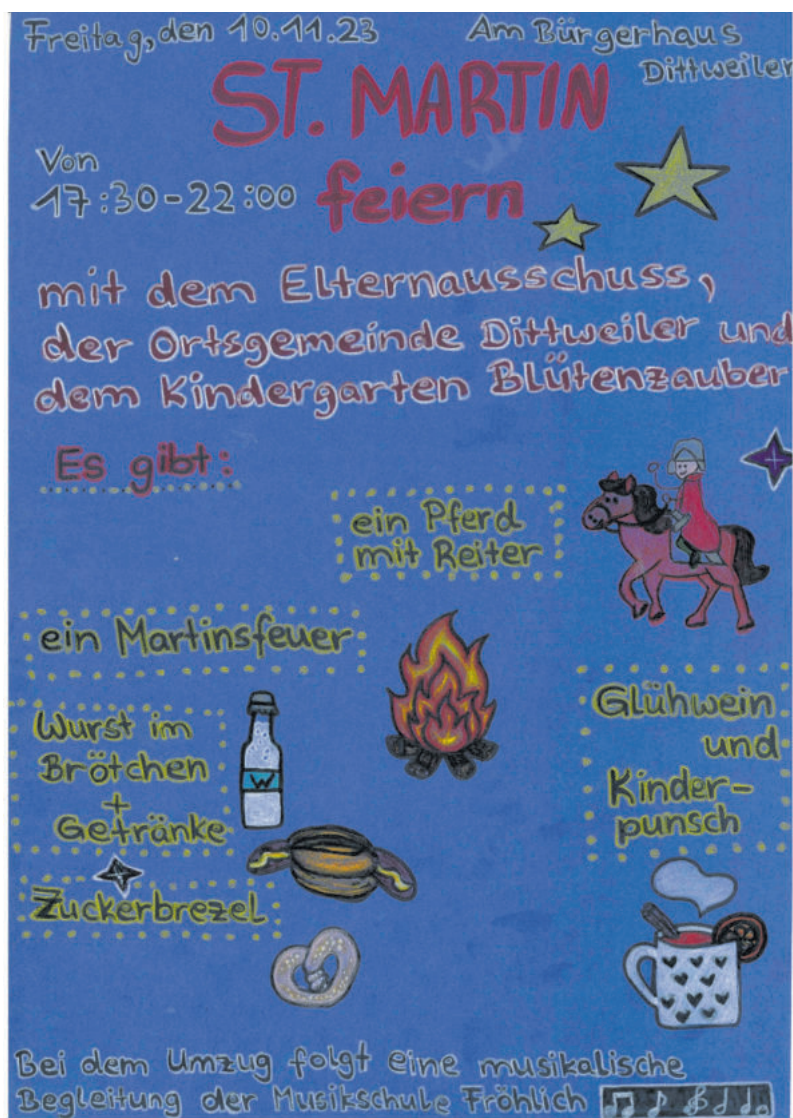 Freitag, den 10.11.23
Am Bürgerhaus
Dittweiler
ST. MARTIN
feiern
Von
17:30-22:00
mit dem Elternausschuss,
der Ortsgemeinde Dittweiler und
dem Kindergarten Blütenzauber
Es gibt:
ein Pferd
mit Reiter
ein Martinsfeuer
Wurst im
Brötchen
+
Getränke
W
Zuckerbrezel
Glühwein
und
Kinder-
punsch
Bei dem Umzug folgt eine musikalische
Begleitung der Musikschule Fröhlich